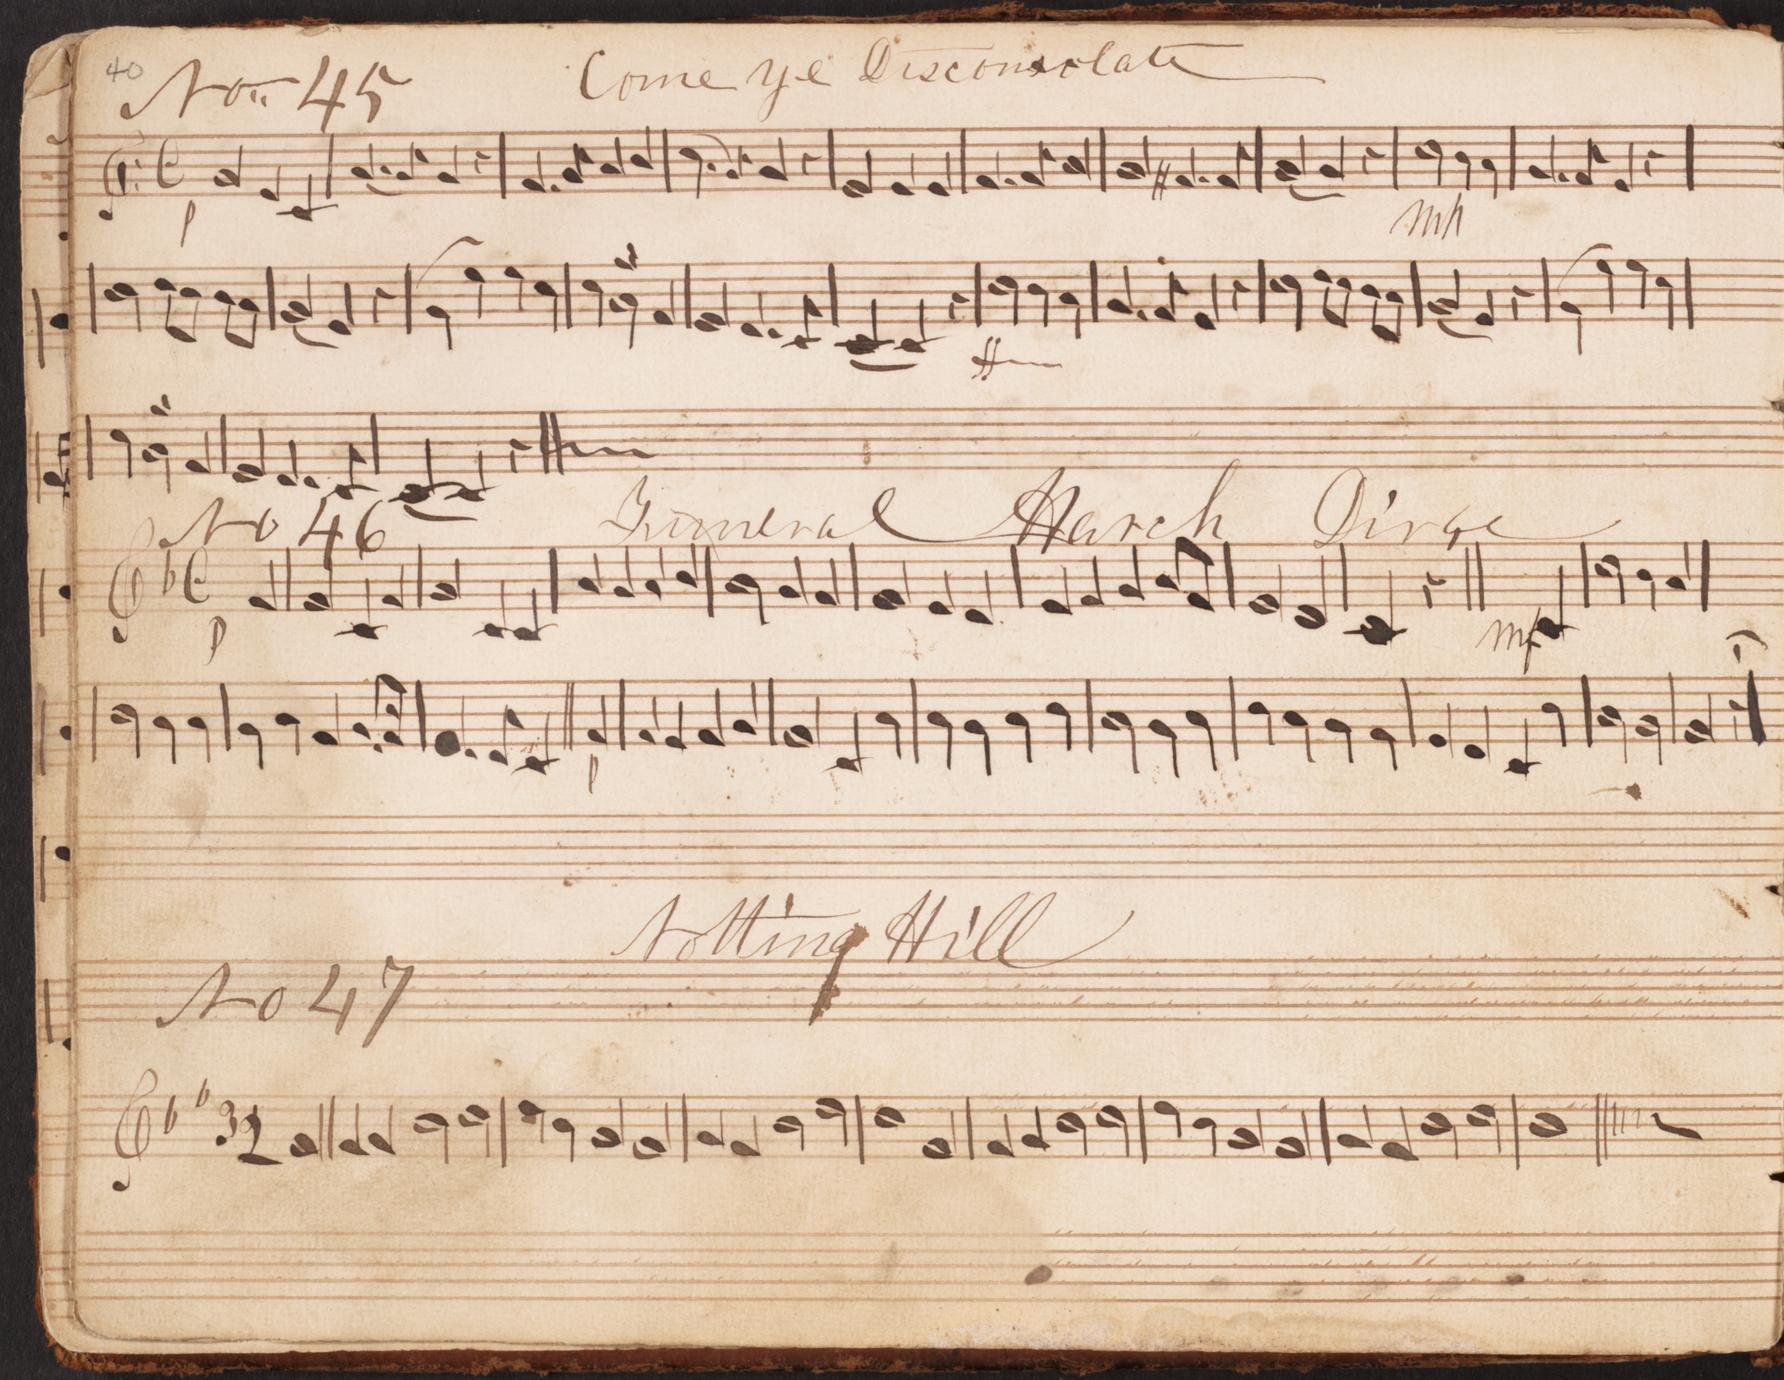 40
No 45 Come ye Disconsolate
p
mp
ff
No 46 Funeral March Dirge
p
mf
p
Notting Hill
No 47
3 2